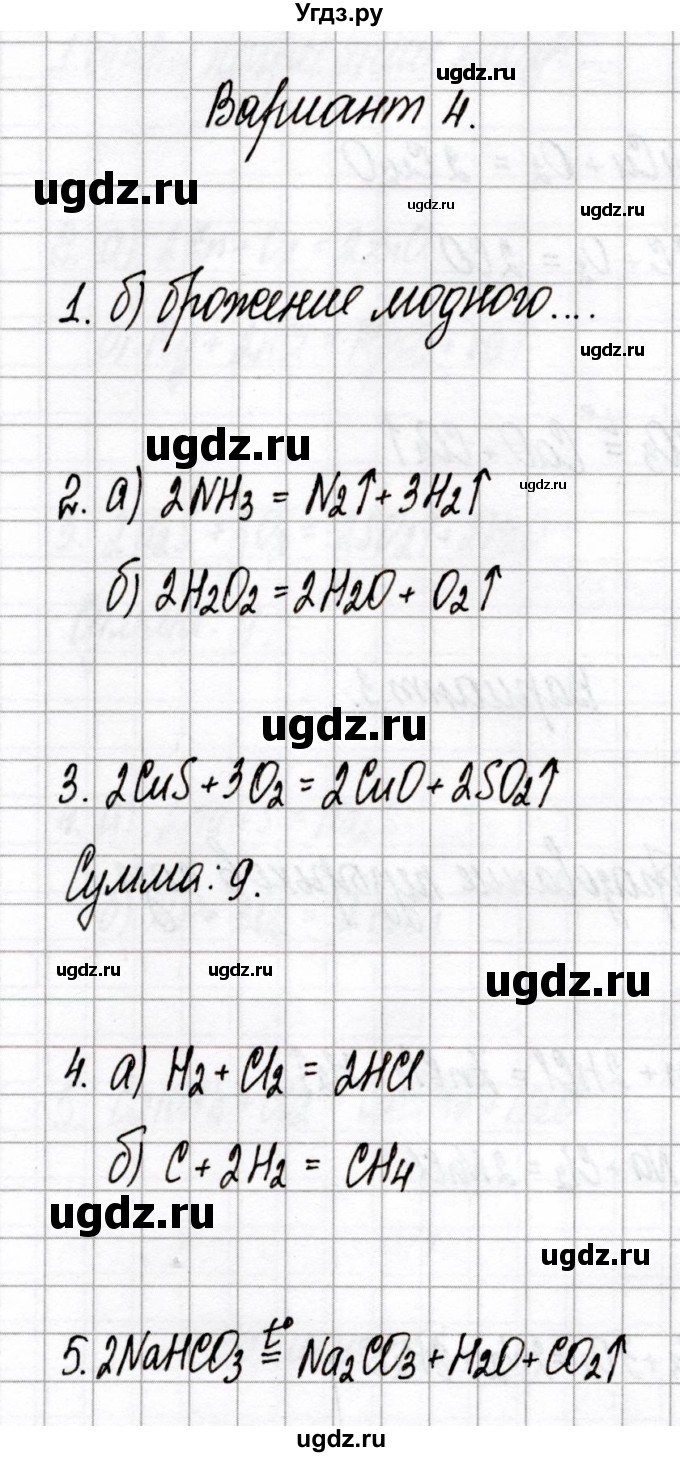 Угдз.ру
ugdz.ru
Вариант 4.
ugdz.ru
ugdz.ru
ugdz.ru
1. б) брожение модного....
ugdz.ru
ugdz.ru
2. а) 2NH₃ = N₂↑ + 3H₂↑
ugdz.ru
б) 2H₂O₂ = 2H₂O + O₂↑
ugdz.ru
3. 2CuS + 3O₂ = 2CuO + 2SO₂↑
Сумма: 9.
ugdz.ru
ugdz.ru
ugdz.ru
4. а) H₂ + Cl₂ = 2HCl
б) C + 2H₂ = CH₄
ugdz.ru
ugdz.ru
5. 2NaHCO₃ t°= Na₂CO₃ + H₂O + CO₂↑
ugdz.ru